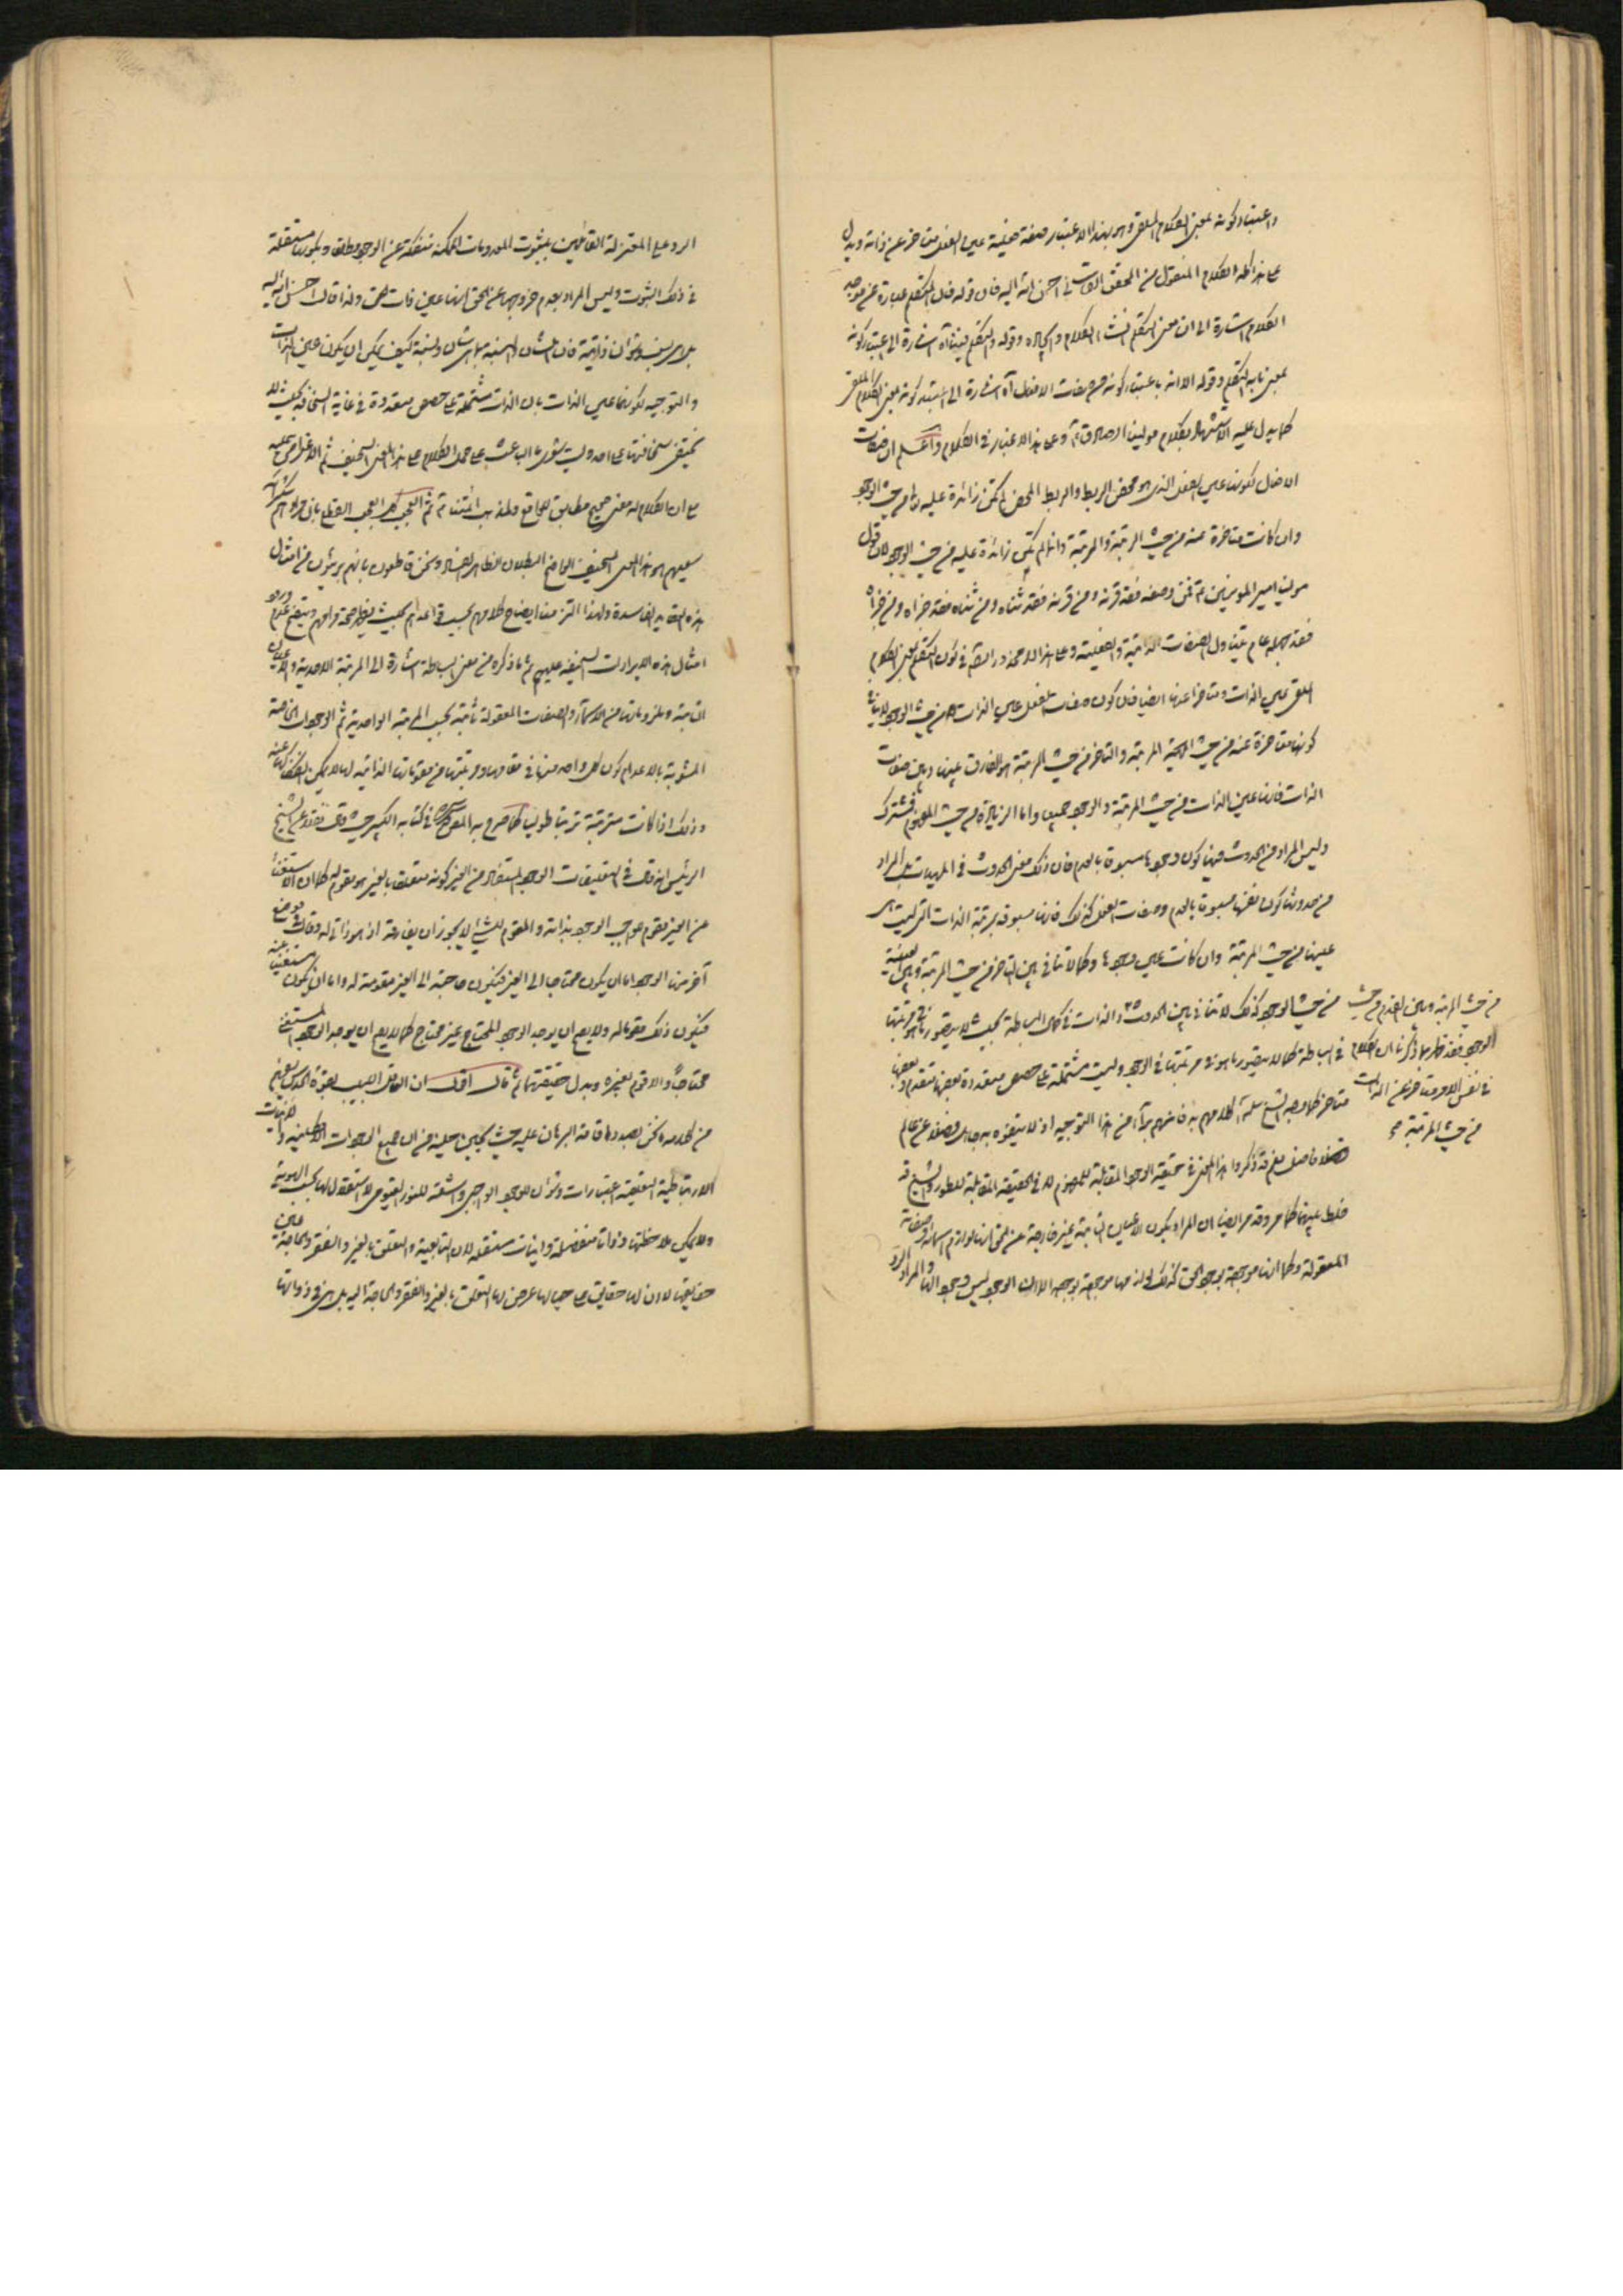 واعتبار كونه بمعنى الكلام الملقى وهو بهذا الاعتبار صفة فعلية عين الفعل متاخر عن ذاته ويدل
على هذا كله الكلام المنقول من المحقق احسن الله اليه فان قوله فان المتكلم عبارة عن موجد
الكلام اشارة الى ان معنى المتكلم منشئ الكلام وقوله والمتكلم فينا اه اشارة الى اعتبار كونه
بمعنى ما به التكلم وقوله الا انه باعتبار كونه من صفات الافعال اه اشارة الى اعتبار كونه بمعنى الكلام الملقى
كما يدل عليه الاستشهاد بكلام مولينا الصادق ع وعلى هذا الاعتبار في الكلام واعلم ان صفات
الافعال لكونها عين الفعل الذي هو محض الربط والربط المحض لم تكن زائدة عليه تعالى من حيث الوجود
وان كانت متاخرة عنه من حيث الرتبة والمرتبة وانما لم تكن زائدة عليه من حيث الوجود لان قول
مولينا امير المؤمنين ع فمن وصفه فقد قرنه ومن قرنه فقد ثناه ومن ثناه فقد جزاه ومن جزاه
فقد جهله عام يتناول الصفات الذاتية والفعلية وعلى هذا لا محذور ايضا في كون المتكلم بمعنى الكلام
الملقى عين الذات ومتاخرا عنها ايضا فان كون صفات الفعل عين الذات من حيث الوجود لا ينافي
كونها متاخرة عنه من حيث المرتبة والتاخر من حيث المرتبة هو الفارق بينها وبين صفات
الذات فانها عين الذات من حيث المرتبة والوجود جميعا واما الزيادة من حيث المفهوم فمشترك
وليس المراد من الحدوث فيها كون وجودها مسبوقا بالعدم فان ذلك معنى الحدوث في المهيات بل المراد
من حدوثها كون نفسها مسبوقا بالعدم وصفات الفعل كذلك فانها مسبوقة بمرتبة الذات التي ليست هي
عينها من حيث المرتبة وان كانت عين وجودها وكما لا تنافي بين التاخر من حيث المرتبة وبين العينية
من حيث الوجود كذلك لا تنافي بين الحدوث والذات في كمال البساطة بحيث لا يتصور ما هو في مرتبتها
في البساطة كما لا يتصور ما هو في مرتبتها في الوجود وليست مشتملة على حصص متعددة بعضها متقدم وبعضها
متاخر كما وجه الشيخ سلمه الله كلامهم به فانهم براء من هذا التوجيه اذ لا يتفوه به جاهل فضلا عن عالم
فضلا من ذكروا هذا المعنى في حقيقة الوجود المقابلة للمفهوم لا في الحقيقة المقابلة للطور والشيخ قد
خلط بينهما كما مر وقد مر ايضا ان المراد بكون الاعيان الثابتة غير خارجة عن الحق انها لوازم اسمائه وصفاته
المعقولة وكما انها موجودة بوجود الحق كذلك لوازمها موجودة بوجوده لا ان الوجود ليس وجودها والمراد الرد
من حيث المرتبة وبين القدم من حيث
الوجود فقد ظهر بما ذكرنا ان الكلام
في نفس الامر متاخر عن الذات
من حيث المرتبة
الرد على المعتزلة القائلين بثبوت المعدومات الممكنة منفكة عن الوجود مطلقا وبكونها مستقلة
في ذلك الثبوت وليس المراد بعدم خروجها عن الحق انها عين ذات الحق ولذا قال احسن الله اليه
بل هي شؤون ذاتية فان الشان والنسبة بما هي شان ونسبة كيف يمكن ان يكون عين الذات
والتوجيه لكونها عين الذات بان الذات مشتملة على حصص متعددة في غاية السخافة بحيث لا
يخفى سخافتها على احد وليت شعري ما الباعث على حمل الكلام على هذا المعنى السخيف ثم الاعتراض عليه
مع ان الكلام له معنى صحيح مطابق للواقع ولمذهب ائمتنا ع ثم العجب كل العجب القطع بان مرادهم
هو هذا المعنى السخيف الواضح البطلان الظاهر الفساد ونحن قاطعون بانهم بريئون من امثال
هذه العقايد الفاسدة ولهذا التزمنا ايضاح كلامهم بحسب قواعدهم بحيث يظهر صحة مرامهم ويتضح عدم ورود
امثال هذه الايرادات السخيفة عليهم ثم ما ذكره من معنى البساطة اشارة الى المرتبة الاحدية والاعيان
الثابتة وملزوماتها من الاسماء والصفات المعقولة ثابتة بحسب المرتبة الواحدية ثم الوجودات الخاصة
المشوبة بالاعدام كون كل واحد منها في مقامها ومرتبتها من مقوماتها الذاتية لها لا يمكن انفكاكها عنه
وذلك اذا كانت مترتبة ترتبا طوليا كما صرح به المصنف في كتابه الكبير حيث قال نقلا عن الشيخ
الرئيس انه قال في التعليقات الوجود المستفاد من الغير كونه متعلقا بالغير هو مقوم له كما ان الاستغناء
عن الغير مقوم لواجب الوجود بذاته والمقوم للشيء لا يجوز ان يفارقه اذ هو ذاتي له وقال في موضع
آخر منها الوجود اما ان يكون محتاجا الى الغير فيكون حاجته الى الغير مقومة له واما ان يكون مستغنيا عنه
فيكون ذلك مقوما له ولا يصح ان يوجد الوجود المحتاج غير محتاج كما لا يصح ان يوجد الوجود المستغني
محتاجا والا قوم بغيره وبدل حقيقتهما ثم قال اقول ان العاقل اللبيب بقوة الحدس يفهم
من كلامه ما نحن بصدد اقامة البرهان عليه حيث يحين حينه من ان جميع الوجودات الامكانية والانيات
الارتباطية التعلقية اعتبارات وشؤون للوجود الواجبي واشعة للنور القيومي لا استقلال لها بحسب الهوية
ولا يمكن ملاحظتها ذواتا منفصلة وانيات مستقلة لان التابعية والتعلق بالغير والفقر والحاجة عين
حقايقها لا ان لها حقايق على حيالها عرض لها التعلق بالغير والفقر والحاجة اليه بل هي في ذواتها